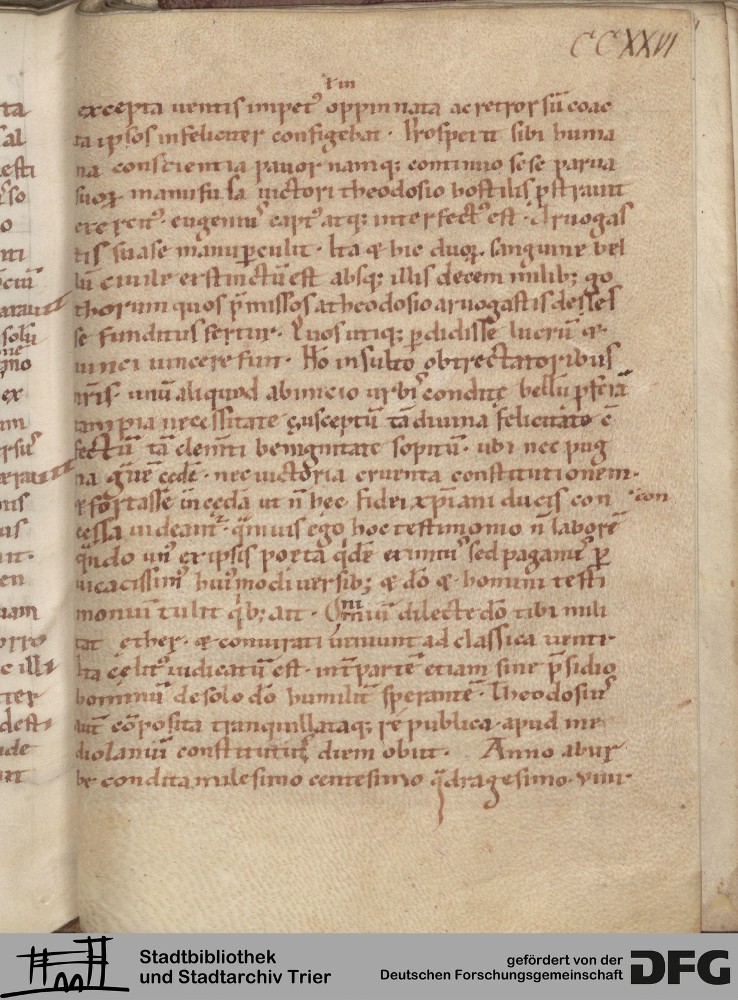 CCXXVI
excepta uentis impet᷒ oppinnata ac retrorsū coac
ta ipsos infeliciter configebat. Prosperit sibi huma
na conscientia pauor namq; continuo sese parua
suoꝝ manu fusa uictori theodosio hostilis p̄strauit
exercit᷒. eugeniu᷒ capt᷒ atq; interfect᷒ est. Aruogas
tis sua se manu ꝑculit. Ita & hic duoꝝ sanguine bel
lū ciuile exstinctū est absq; illis decem milib; go
thorum quos p̄missos a theodosio aruogastis delesl
se funditus fertur. Quos utiq; ꝑdidisse lucrū &
uinci uincere fuit. Nō insulto obtrectatoribus
nr̄is. unū aliquod ab inicio urbis condite bellū ꝓferā
tam pia necessitate susceptū tā diuina felicitate c̄
fectū tā clem̄ti benignitate sopitū. ubi nec pug
na g̃uē cedē. nec uictoria cruenta constitutionem.
& fortasse incedā ut n̄ hec fidei xp̄iani ducis con con
cessa uideant᷑. q̄muis ego hoc testimonio n̄ laborē
q̄ndo un᷒ ex ipsis poeta q̄dē eximiu᷒ sed paganu᷒ ꝑ
uicacissim᷒ hui᷒modi uersib; & dō & homini testi
moniū tulit q̄b; ait. O nimiū dilecte dō tibi mili
tat ether. & coniurati ueniunt ad classica uenti.
Ita celit᷒ iudicatū est. int̄ partē etiam sine p̄sidio
hominū de solo dō humilit̄ sperantē. Theodosiu᷒
aut̄ cōposita tranquillataq; rē publica. apud me
diolanum constitutu᷒ diem obiit. Anno ab ur
be condita milesimo centesimo q̄dragesimo. viiii.
Stadtbibliothek
und Stadtarchiv Trier
gefördert von der
Deutschen Forschungsgemeinschaft
DFG